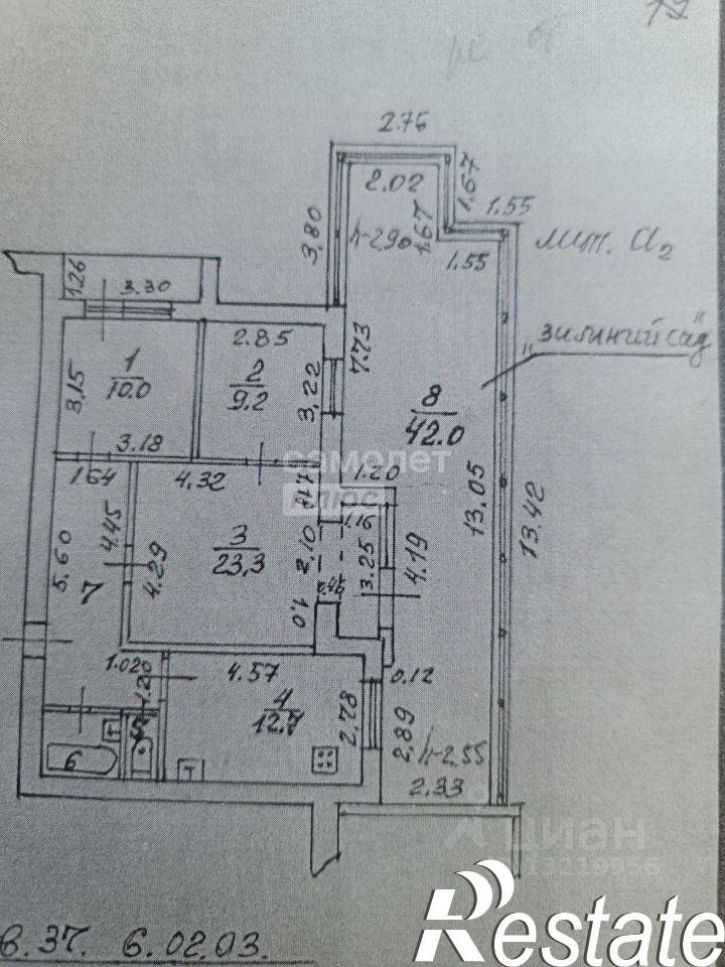 2.75
2.02
1.67
1.55
3.80
h-2.90
1.67
1.55
лит. a₂
1.26
3.30
"зилиний сад"
2.85
7.73
1
10.0
2
9.2
3.15
3.22
8
42.0
3.18
самолет
плюс
1.20
1.64
4.32
1.16
13.05
13.42
4.45
3
23,3
2.10
3.25
4.19
5.60
4.29
0.46
7
1.0
1.020
4.57
0.12
1.20
4
12.7
2.78
2.89
5
h-2.55
6
Т
Т
2.33
циан
в.37. 6.02.03.
Restate